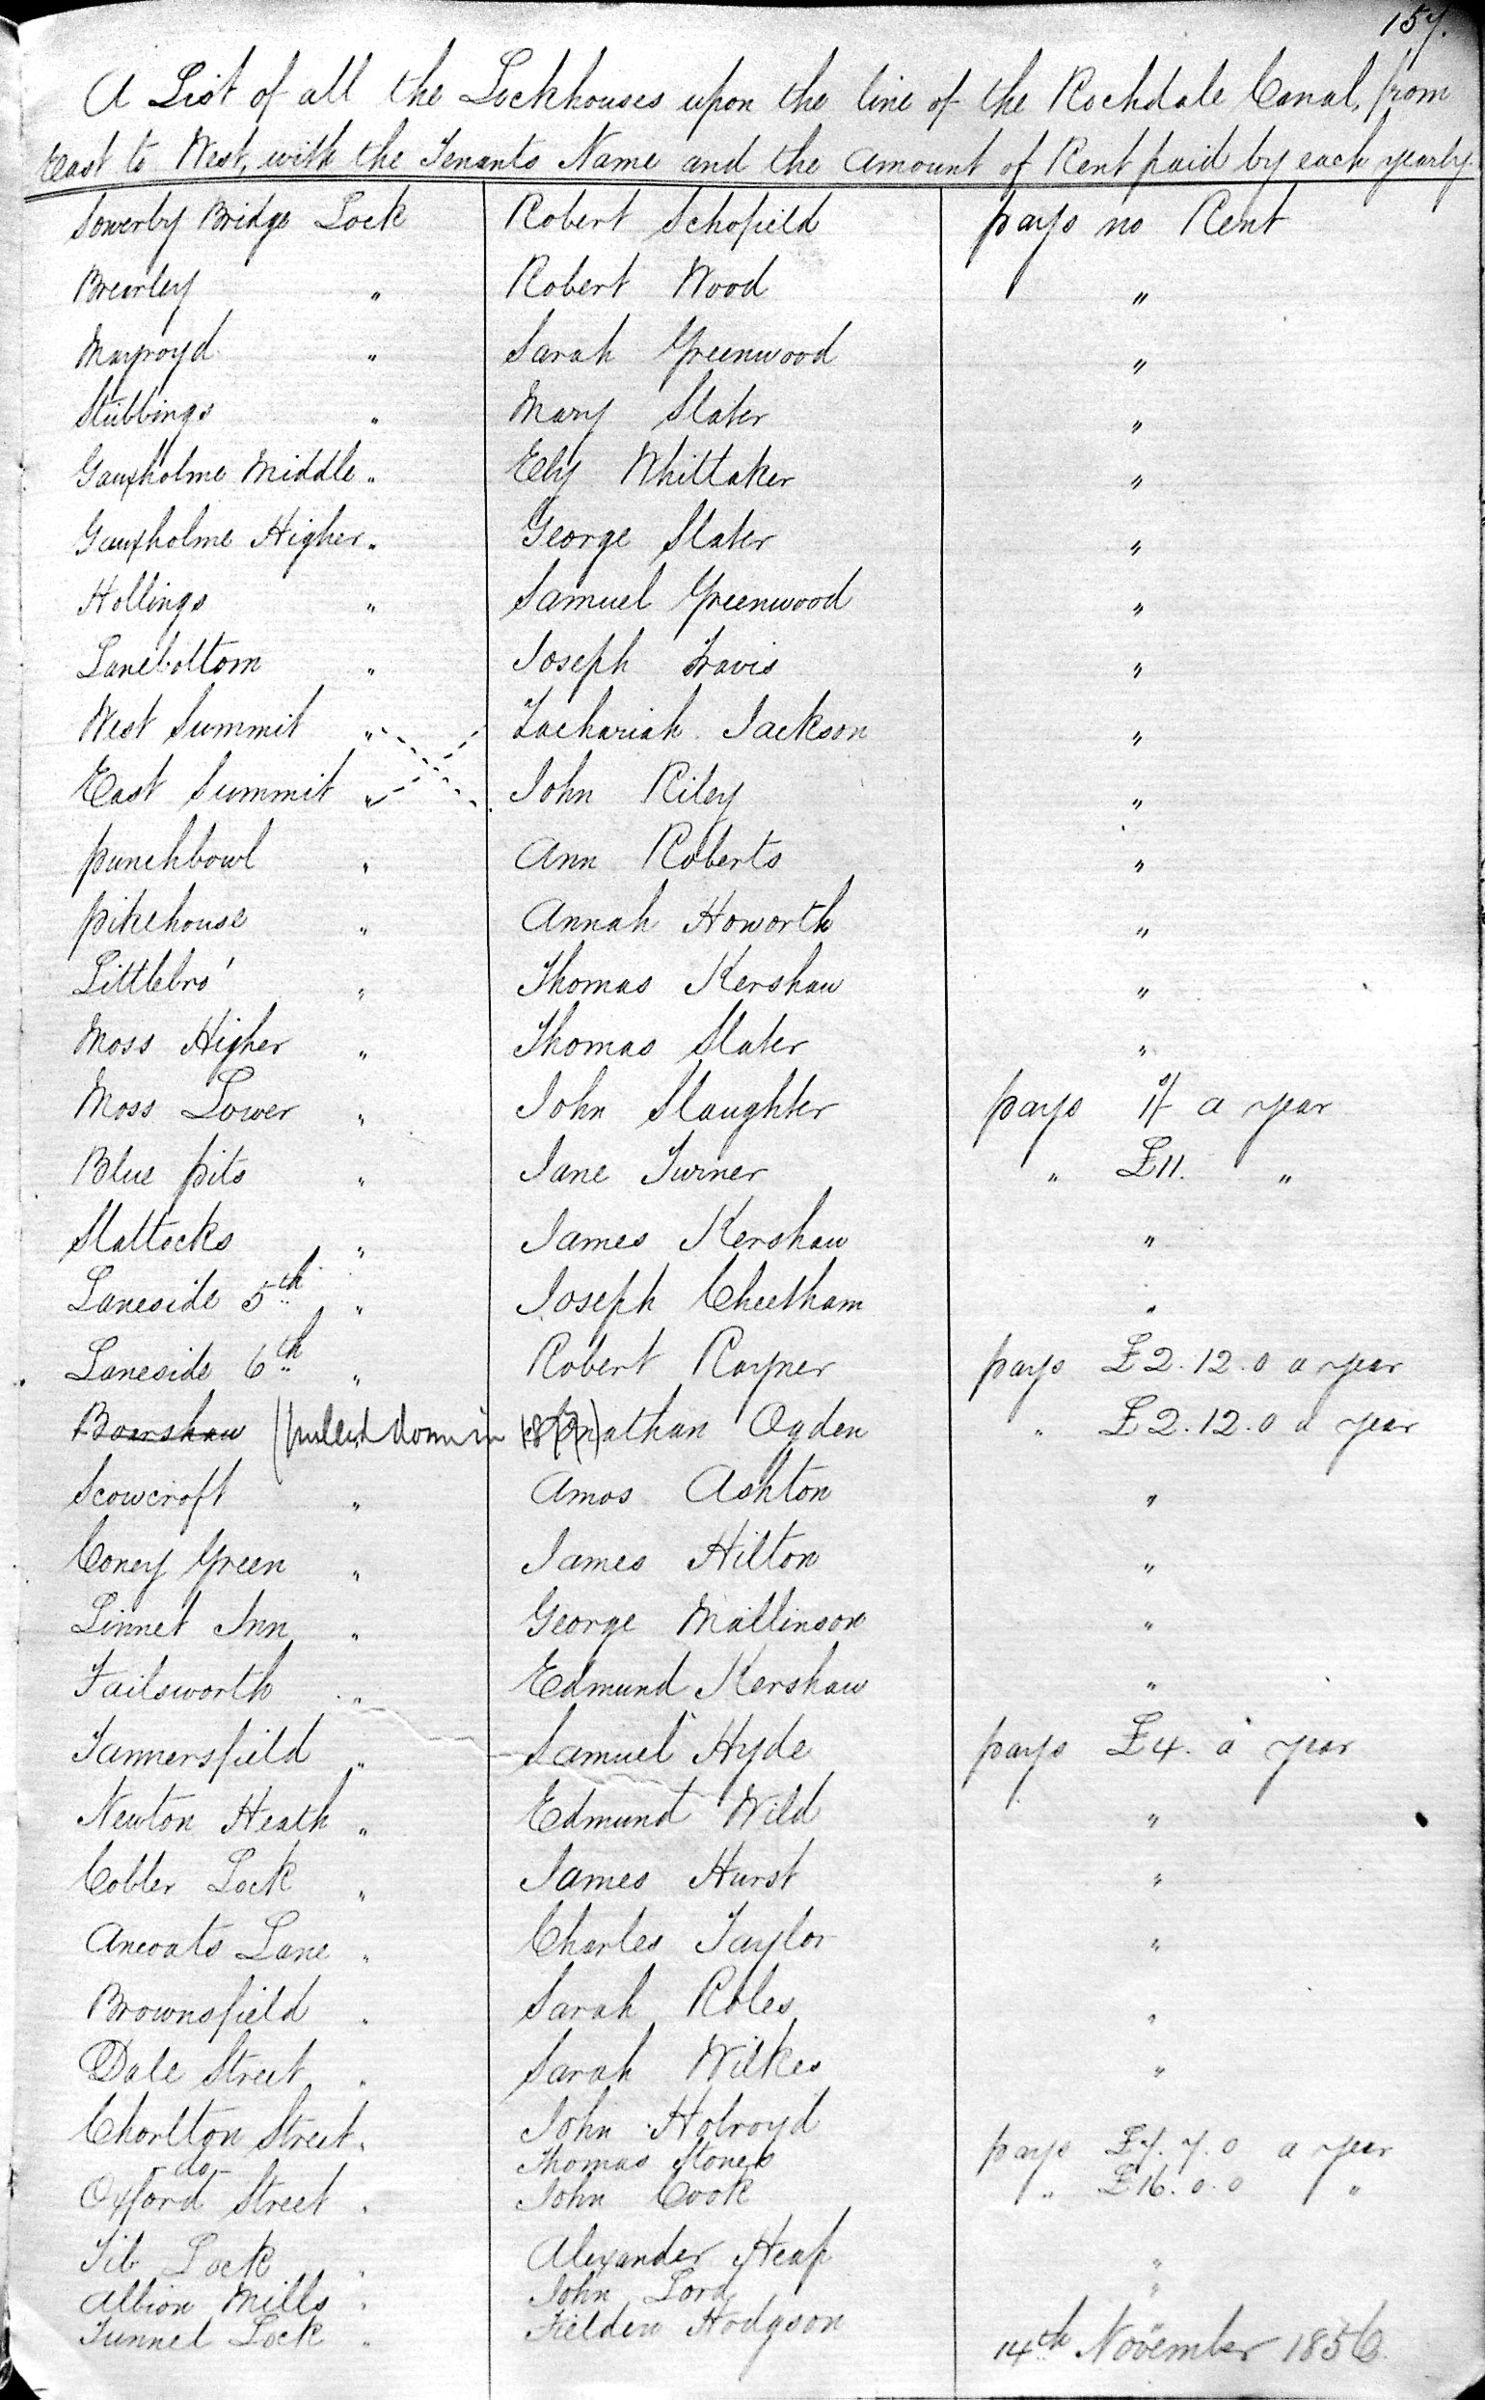 157.
A List of all the Lockhouses upon the line of the Rochdale Canal, from
East to West, with the Tenants Name and the Amount of Rent paid by each yearly.
Sowerby Bridge Lock Robert Schofield pays no Rent
Brearley " Robert Wood "
Mayroyd " Sarah Greenwood "
Stubbings " Mary Slater "
Gauxholme Middle " Ely Whittaker "
Gauxholme Higher " George Slater "
Hollings " Samuel Greenwood "
Lanebottom " Joseph Travis "
West Summit " Zachariah Jackson "
East Summit " John Riley "
punchbowl " Ann Roberts "
pikehouse " Annah Howorth "
Littlebro' " Thomas Kershaw "
Moss Higher " Thomas Slater "
Moss Lower " John Slaughter pays 1/ a year
Blue pits " Jane Turner " £11. "
Slattocks " James Kershaw "
Laneside 5th " Joseph Cheetham "
Laneside 6th " Robert Rayner pays £2.12.0 a year
Boarshaw (pulled down in Jonathan Ogden " £2.12.0 a year
Scowcroft " Amos Ashton "
Coney Green " James Hilton "
Linnet Inn " George Mallinson "
Failsworth " Edmund Kershaw "
Tannersfield " Samuel Hyde pays £4. a year
Newton Heath " Edmund Wild "
Cobler Lock " James Hurst "
Ancoats Lane " Charles Taylor "
Brownsfield " Sarah Roles "
Dale Street " Sarah Wilkes "
Chorlton Street " John Holroyd pays £7.7.0 a year
do Thomas Stones " £16.0.0 "
Oxford Street " John Cook
Tib Lock " Alexander Heap "
Albion Mills " John Lord "
Tunnel Lock " Fielden Hodgson "
14th November 1856.